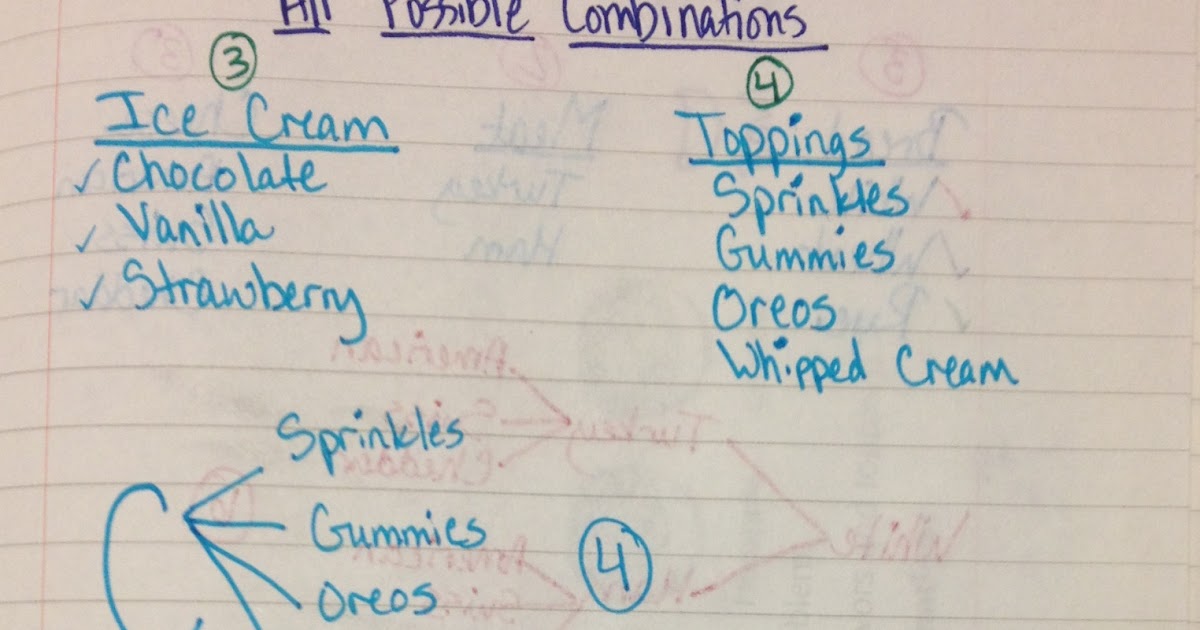 All Possible Combinations
3
4
Ice Cream
Toppings
✓ Chocolate
Sprinkles
✓ Vanilla
Gummies
✓ Strawberry
Oreos
Whipped Cream
Sprinkles
Gummies
4
Oreos
C